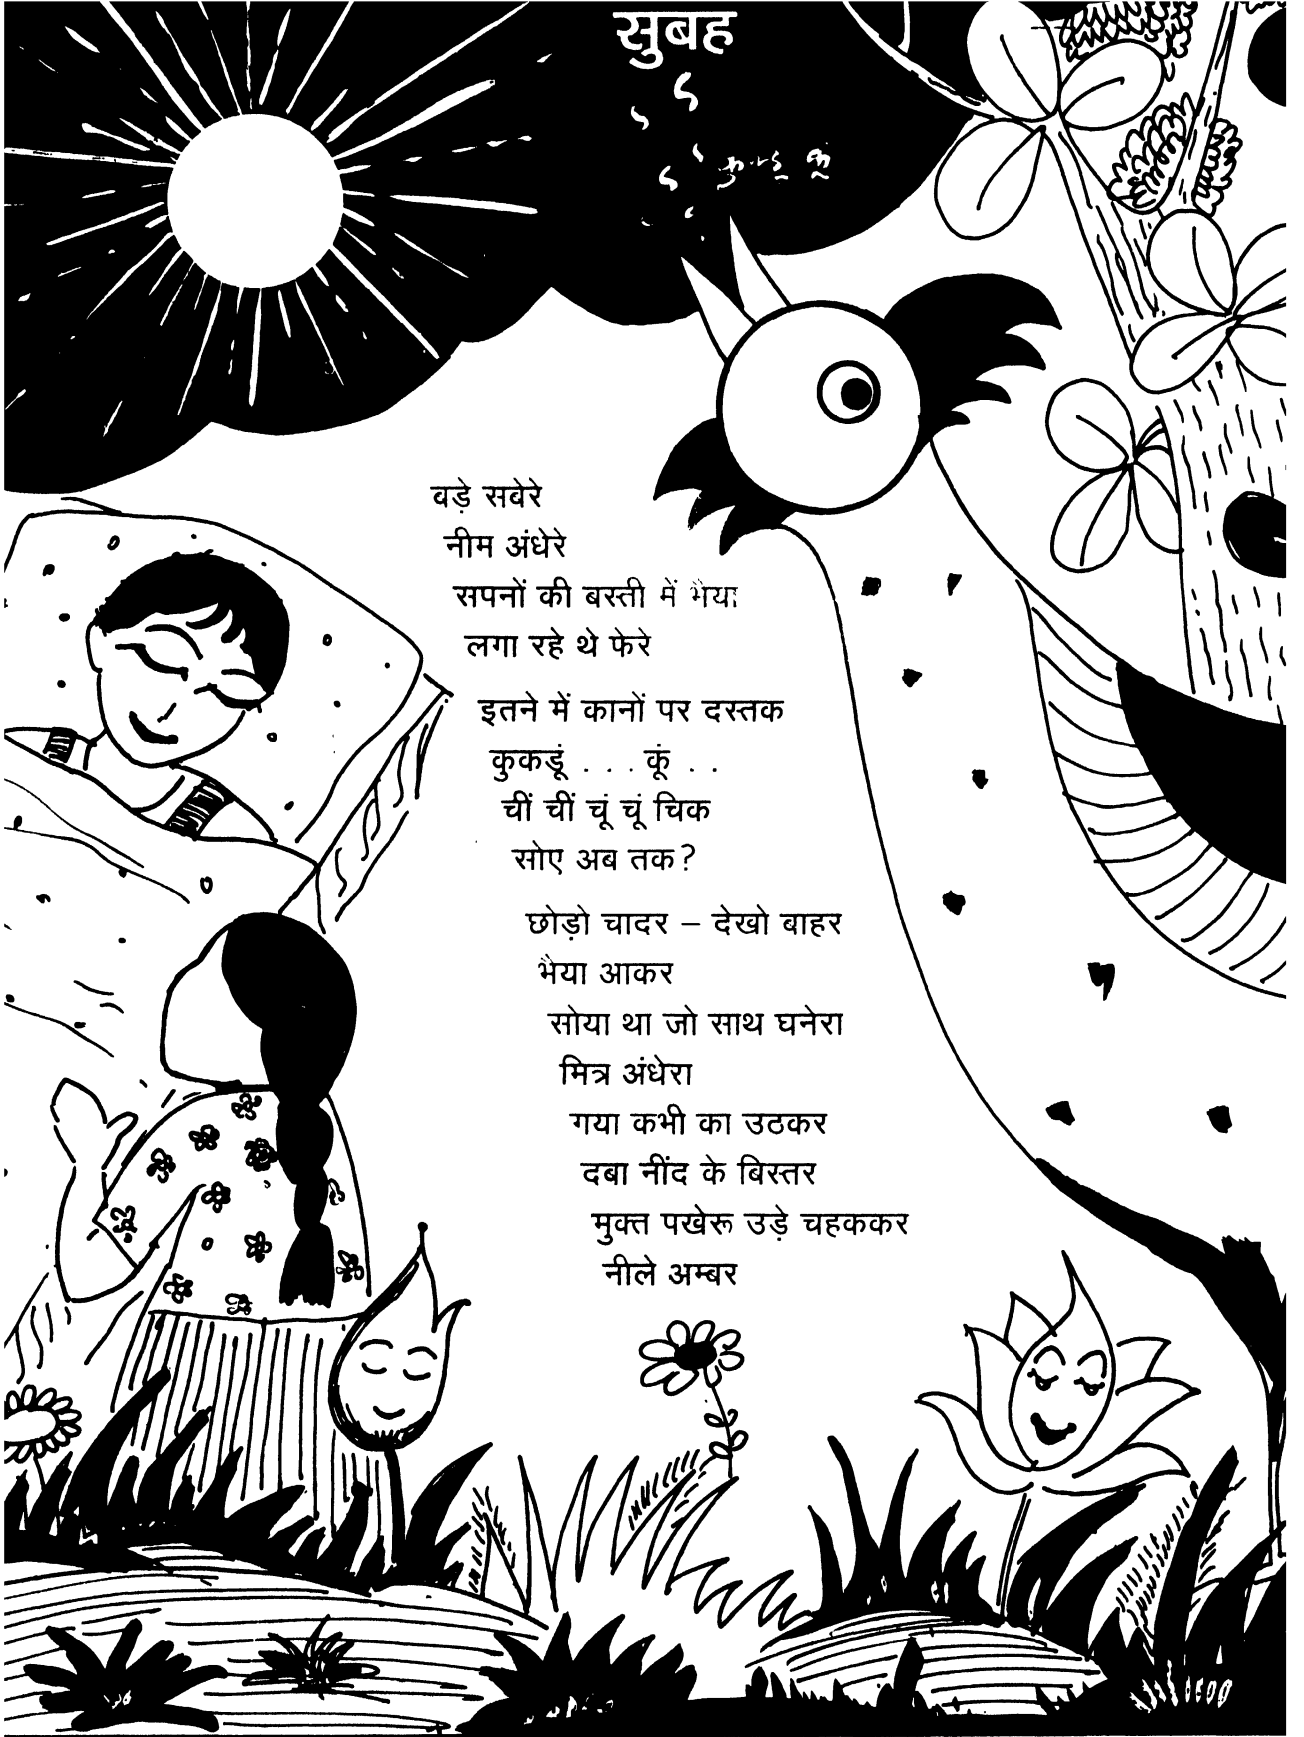 सुबह
बड़े सबेरे
नीम अंधेरे
सपनों की बस्ती में भैया
लगा रहे थे फेरे
इतने में कानों पर दस्तक
कुकडूं . . . कूं . .
चीं चीं चूं चूं चिक
सोए अब तक?
छोड़ो चादर – देखो बाहर
भैया आकर
सोया था जो साथ घनेरा
मित्र अंधेरा
गया कभी का उठकर
दबा नींद के बिस्तर
मुक्त पखेरू उड़े चहककर
नीले अम्बर